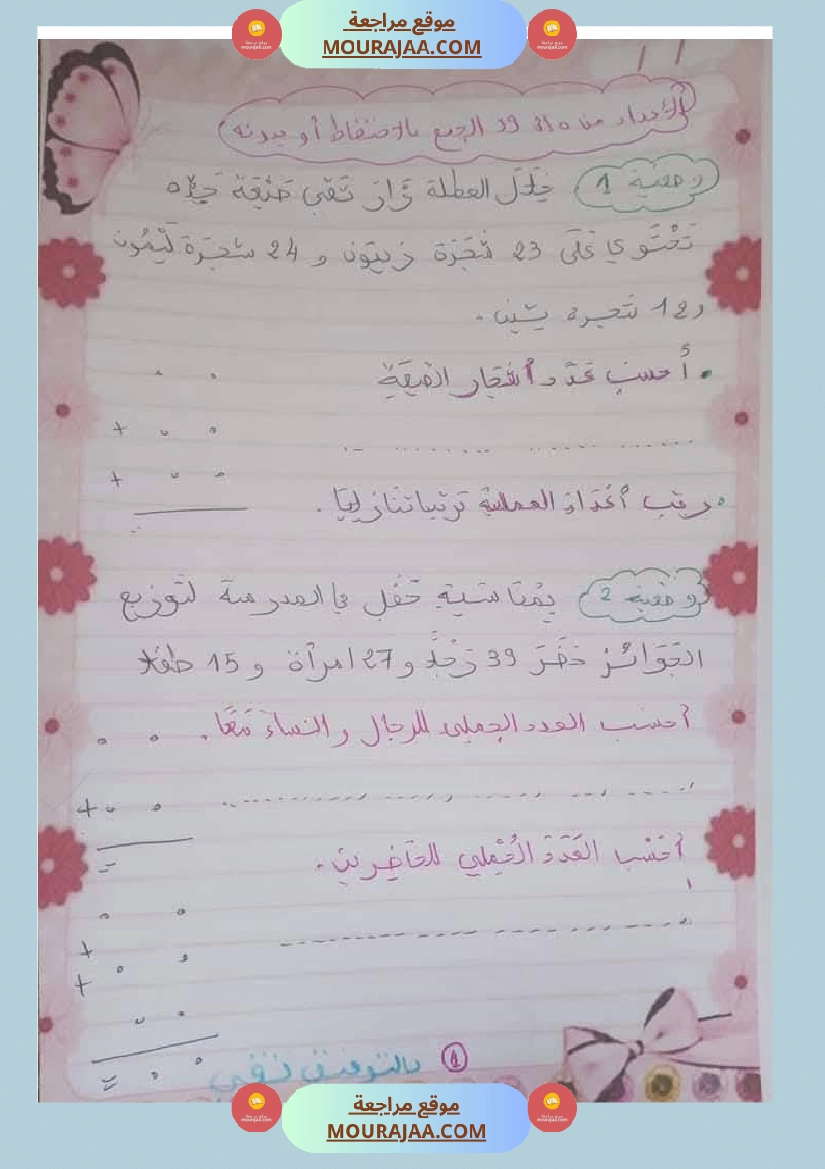 موقع مراجعة
MOURAJAA.COM
الأعداد من 0 إلى 99 الجمع بالاحتفاظ أو بدونه
وضعية 1 خِلَالَ العطلة زَارَ تَقِي ضَيْعَةَ جَدِّه
تَحْتَوِي عَلَى 23 شَجَرَة زيتون و 24 شجرَة لَيْمُون
و 12 شجرة تين.
أحسب عدد أشجار الضيعة
رتب أعداد العملية ترتيبا تنازليا.
وضعية 2 بمناسبة حفل في المدرسة لتوزيع
الجَوَائِز حَضَرَ 39 رَجُلًا و 27 امرأة و 15 طفلا
أحسب العدد الجملي للرجال و النساء مَعًا.
أحْسب العَدَدَ الجُمْلِي للحَاضِرِينَ.
بالتوفيق تقي 1
موقع مراجعة
MOURAJAA.COM